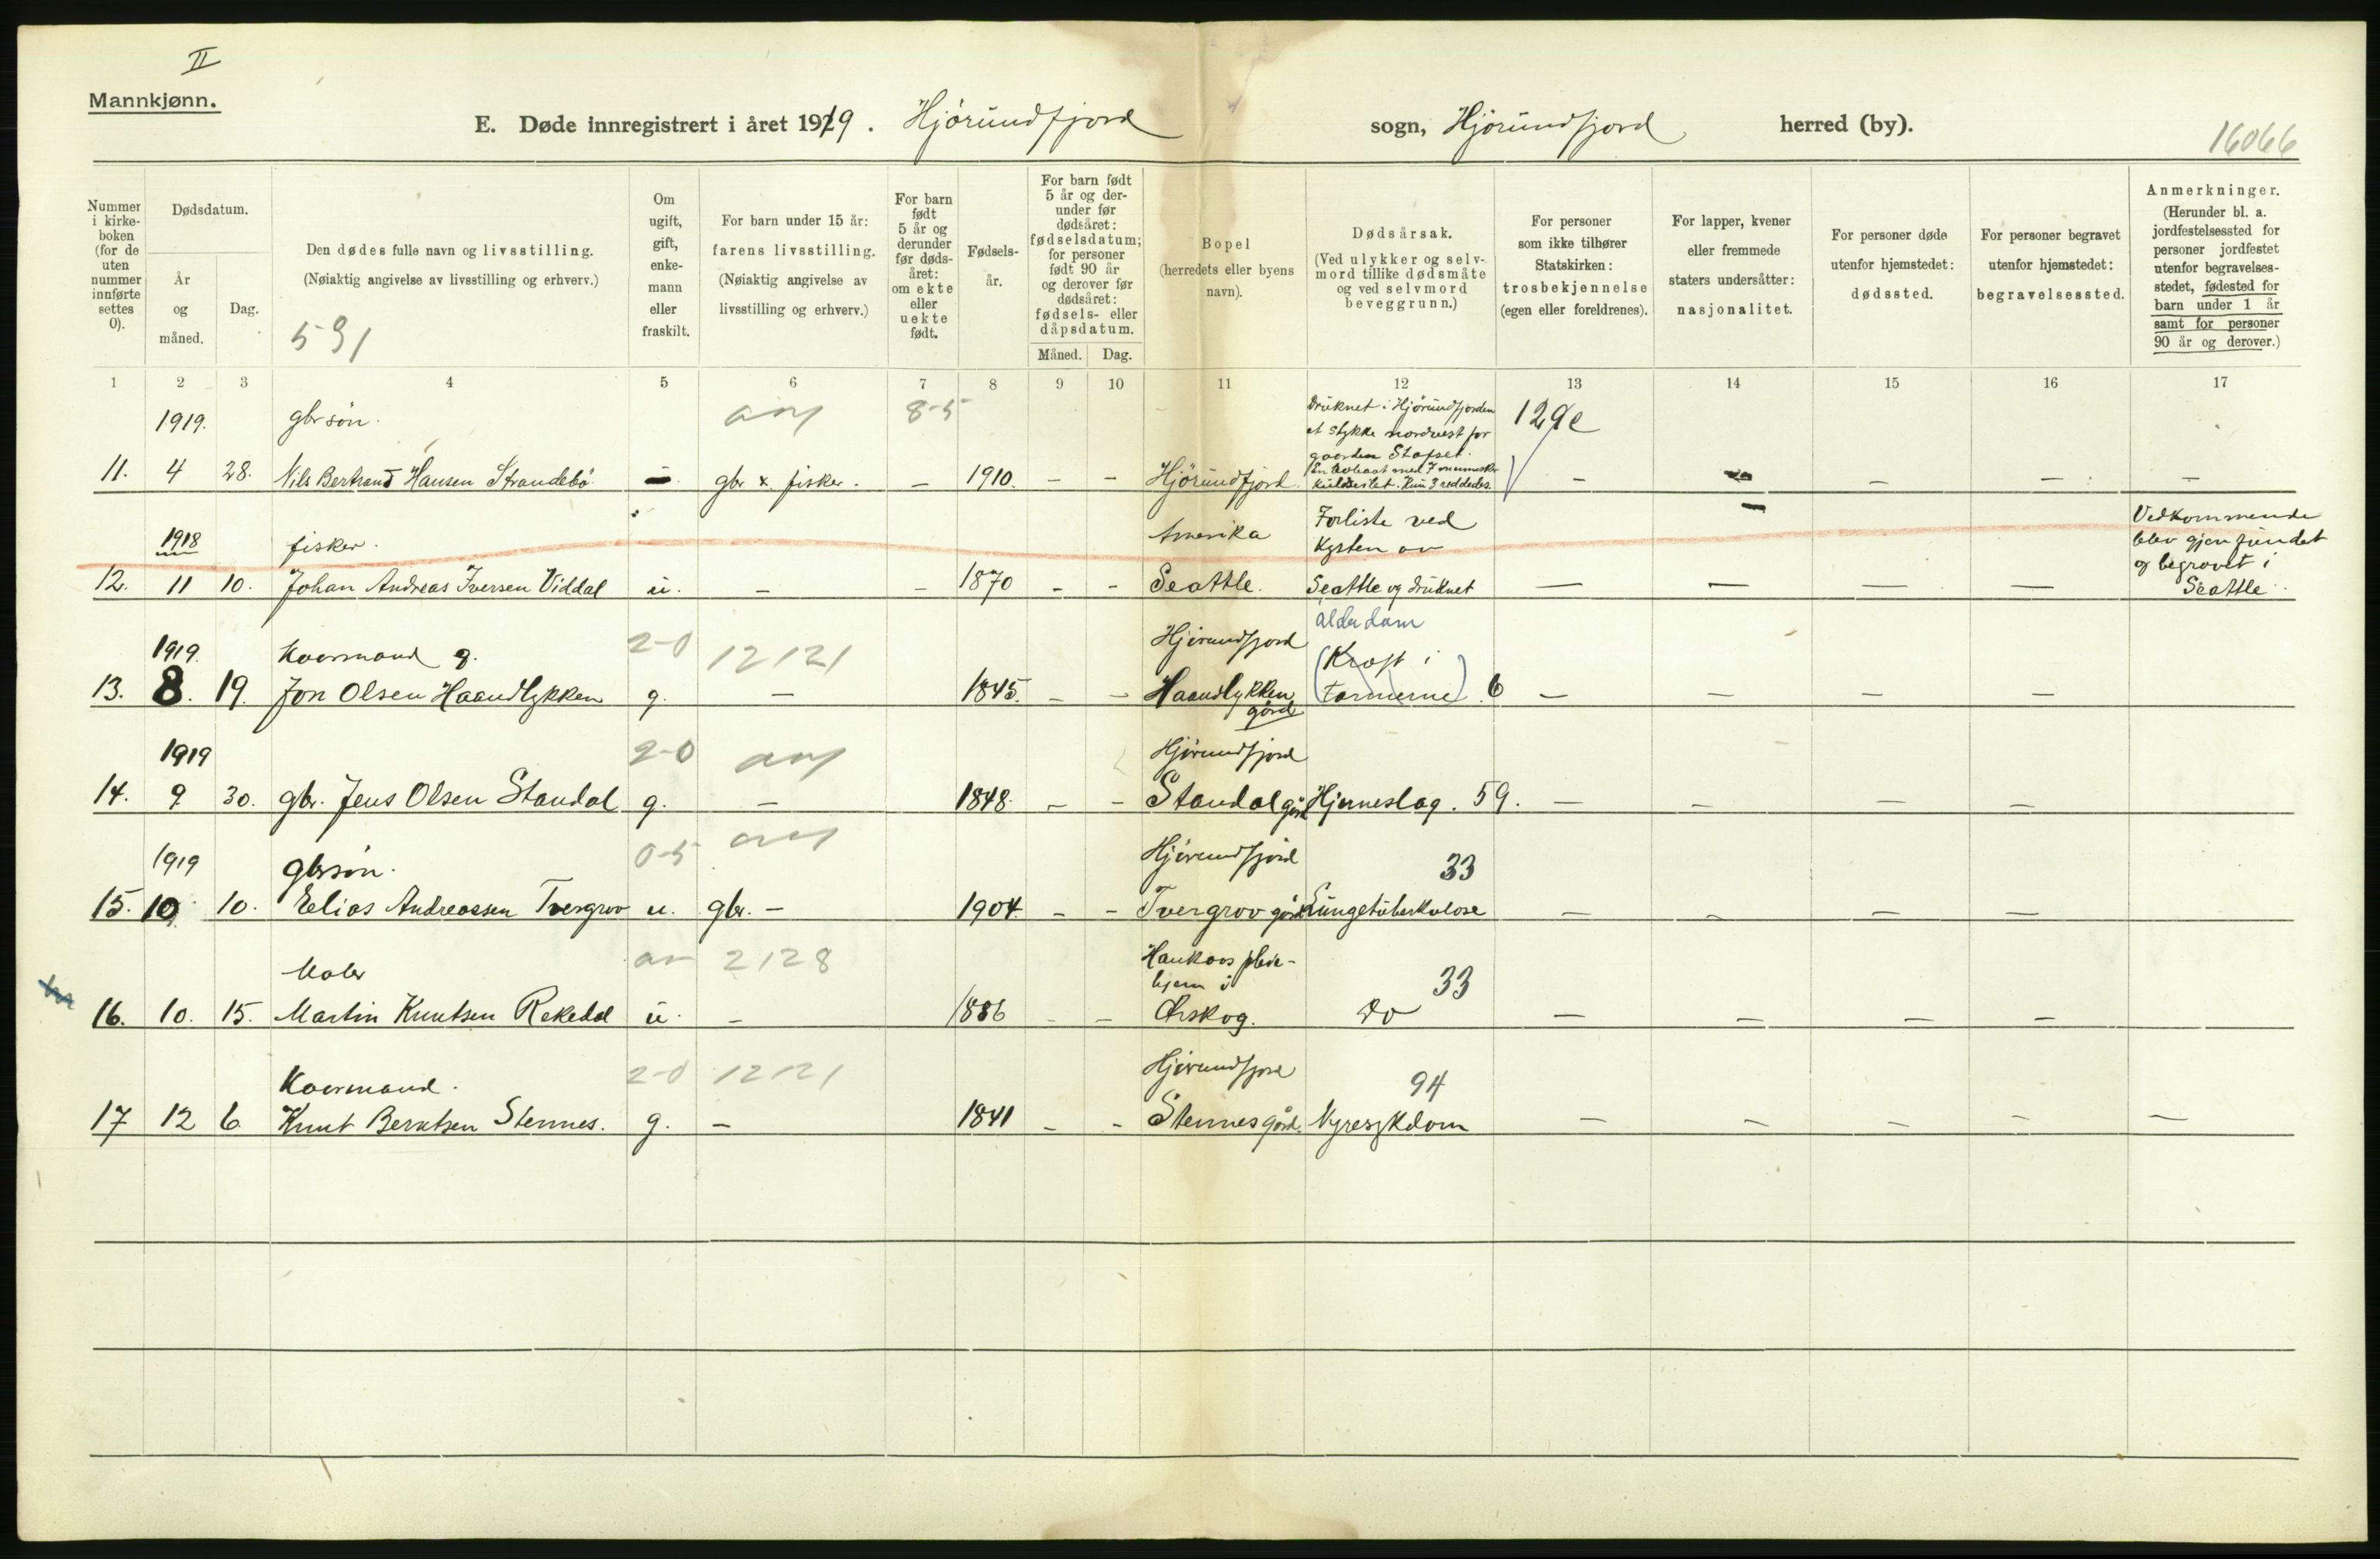 II
Mannkjønn.
E. Døde innregistrert i året 1919. Hjørundfjord sogn, Hjørundfjord herred (by).
16066
Nummer i kirke-boken (for de uten nummer innførte settes 0).
Dødsdatum.
År og måned.
Dag.
Den dødes fulle navn og livsstilling.
(Nøiaktig angivelse av livsstilling og erhverv.)
591
Om ugift, gift, enke-mann eller fraskilt.
For barn under 15 år:
farens livsstilling.
(Nøiaktig angivelse av livsstilling og erhverv.)
For barn født 5 år og derunder før døds-året: om ekte eller uekte født.
Fødsels-år.
For barn født 5 år og der-under før dødsåret: fødselsdatum; for personer født 90 år og derover før dødsåret: fødsels- eller dåpsdatum.
Måned. Dag.
Bopel
(herredets eller byens navn).
Dødsårsak.
(Ved ulykker og selv-mord tillike dødsmåte og ved selvmord beveggrunn.)
For personer som ikke tilhører Statskirken: trosbekjennelse (egen eller foreldrenes).
For lapper, kvener eller fremmede staters undersåtter: nasjonalitet.
For personer døde utenfor hjemstedet: dødssted.
For personer begravet utenfor hjemstedet: begravelsessted.
Anmerkninger.
(Herunder bl. a. jordfestelsessted for personer jordfestet utenfor begravelses-stedet, fødested for barn under 1 år samt for personer 90 år og derover.)
1 2 3 4 5 6 7 8 9 10 11 12 13 14 15 16 17
1919. gbrsøn. 8-5 Druknet i Hjørundfjorden
et stykke nordvest for
gaarden Stafset.
11. 4 28. Nils Bertrand Hansen Strandebø - gbr & fisker. - 1910. - - Hjørundfjord. En med 7 mennesker
kuldseilet. Kun 3 reddedes. - - - - -
1918 fisker. Amerika Forliste ved
Kysten av
Vedkommende
blev gjenfundet
og begravet i
12. 11 10. Johan Andreas Iversen Viddal u. - - 1870 - - Seattle. Seattle og druknet - - - - Seattle.
1919. Kaarmand g. 2-0 12121 Hjørundfjord alderdom
(Kræft i
13. 8. 19. Jon Olsen Haandlykken g. - 1845. - - Haandlykken gård tarmerne) 6 - - - -
1919 2-0 Hjørundfjord
14. 9 30. gbr. Jens Olsen Standal g. - 1848. - - Standal gård Hjerneslag. 59. - - - -
1919 gbrsøn. 0-5 Hjørundfjord 33
15. 10 10. Elias Andreassen Tvergrov u. gbr. - 1904. - - Tvergrov gård Lungetuberkulose - - - -
Maler 2128 Haukaas pleie-
hjem i 33
16. 10. 15. Martin Knutsen Rekedal u. - 1886 - - Ørskog. Do - - - -
Kaarmand. 2-0 12121 Hjørundfjord 94
17 12 6. Knut Berntsen Stennes. g. - 1841 - - Stennes gård. Nyresykdom - - - - -